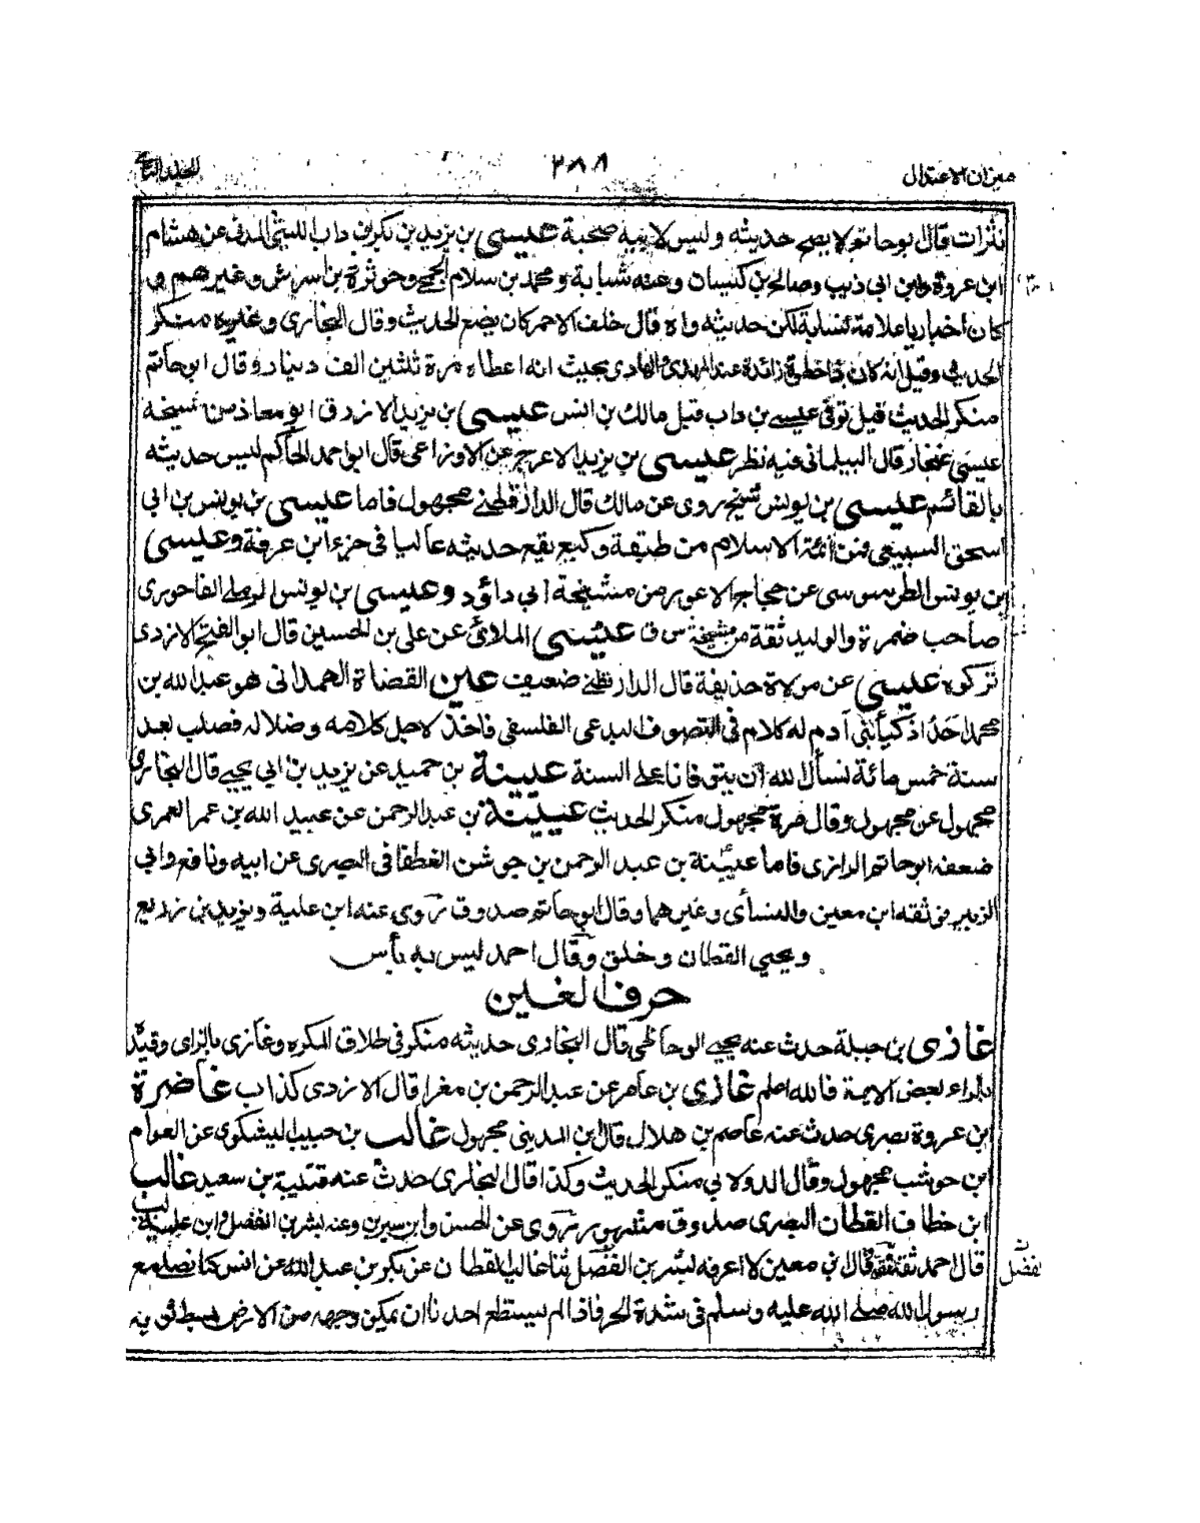 ميزان الاعتدال
٢٨٨
المجلد الثاني
قال ابوحاتم لا يصح حديثه وليس لابيه صحبة عيسى بن يزيد بن بكر بن داب الليثي المدني عن هشام
ابن عروة وابن ابي ذيب وصالح بن كيسان وعنه شبابة ومحمد بن سلام الجمحي وحوثرة بن اشرس وغيرهم و
كان اخباريا علامة نسابة لكن حديثه واه قال خلف الاحمر كان يضع الحديث وقال البخاري وغيره منكر
الحديث وقيل انه كان ذا حظوة زائدة عند المهدي و الهادي بحيث انه اعطاه مرة ثلثين الف دينار وقال ابوحاتم
منكر الحديث قيل توفي عيسى بن داب قبل مالك بن انس عيسى بن يزيد الازرق ابو معاذ من شيخه
عيسى غنجار قال البيلماني فيه نظر عيسى بن يزيد الاعرج عن الاوزاعي قال ابو احمد الحاكم ليس حديثه
بالقائم عيسى بن يونس شيخ روى عن مالك قال الدارقطني مجهول فاما عيسى بن يونس بن ابي
اسحق السبيعي فمن ائمة الاسلام من طبقة وكيع يقع حديثه عاليا في جزء ابن عرفة وعيسى
بن يونس الطرسوسي عن حجاج الاعور من مشيخة ابي داؤد وعيسى بن يونس الرملي الفاخوري
صاحب ضمرة والوليد ثقة من مشيخة س ق عيسى الملائي عن علي بن الحسين قال ابو الفتح الازدي
تركوه عيسى عن مولاه حذيفة قال الدارقطني ضعيف عين القضاة الهمداني هو عبدالله بن
محمد احد اذكياء بني آدم له كلام في التصوف البدعي الفلسفي فاخذ لاجل كلامه وضلاله فصلب بعد
سنة خمس مائة نسأل الله ان يتوفانا على السنة عيينة بن حميد عن يزيد بن ابي يحيى قال البخاري
مجهول عن مجهول وقال مرة مجهول منكر الحديث عيينة بن عبدالرحمن عن عبيد الله بن عمر العمري
ضعفه ابوحاتم الرازي فاما عيينة بن عبد الرحمن بن جوشن الغطفاني البصري عن ابيه ونافع وابي
الزبير فوثقه ابن معين والنسأى وغيرهما وقال ابوحاتم صدوق روى عنه ابن علية ويزيد بن زريع
ويحيى القطان وخلق وقال احمد ليس به بأس
حرف الغين
غازي بن جبلة حدث عنه يحيى الوحاظي قال البخاري حديثه منكر في طلاق المكره وغازي بالزاي وقيد
بالراء بعض الايمة فالله اعلم غازي بن عامر عن عبدالرحمن بن مغرا قال الازدي كذاب غاضرة
ابن عروة بصري حدث عنه عاصم بن هلال قال ابن المديني مجهول غالب بن حبيب اليشكري عن العوام
ابن حوشب مجهول وقال الدولابي منكر الحديث وكذا قال البخاري حدث عنه قتيبة بن سعيد غالب
ابن خطاف القطان البصري صدوق مشهور روى عن الحسن وابن سيرين وعنه بشر بن المفضل وابن علية
قال احمد ثقة ثقة وقال بن معين لا اعرفه بشر بن المفضل ثنا غالب القطان عن بكر بن عبدالله عن انس كنا نصلي مع
رسول الله صلى الله عليه وسلم في شدة الحر فاذا لم يستطع احدنا ان يمكن وجهه من الارض بسط ثوبه